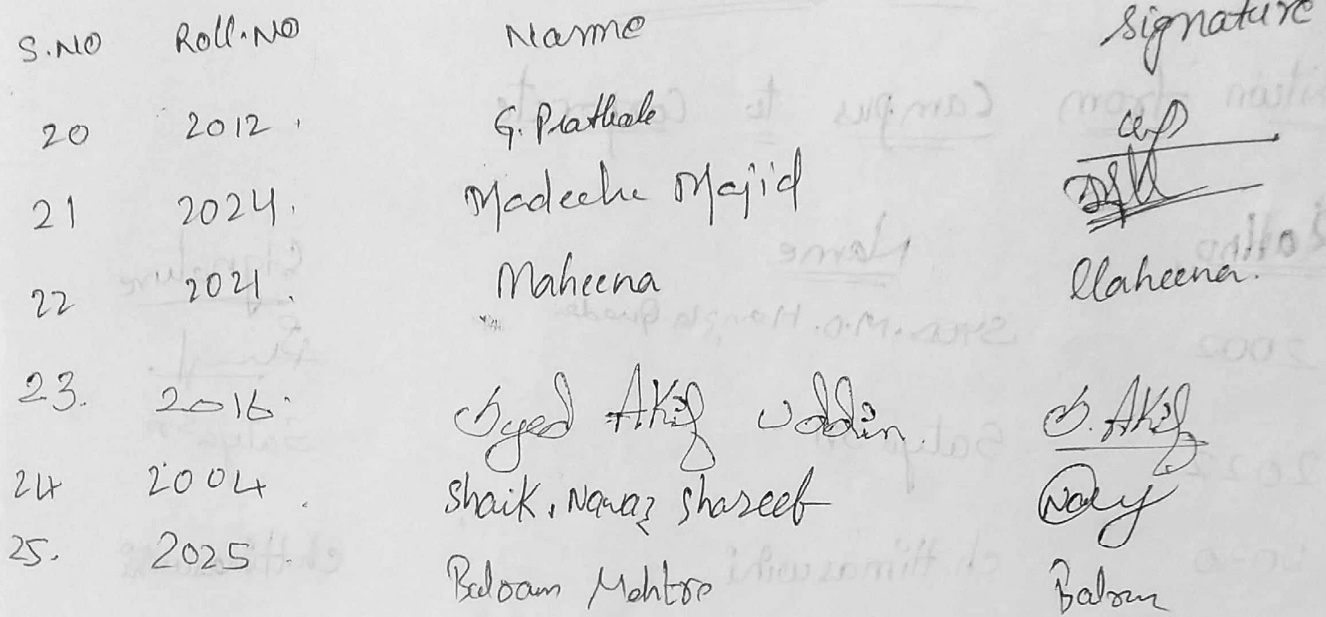 S.NO Roll.NO Name Signature
20 2012. G. Prathale
21 2024. Madeeha Majid
22 2021. Maheena Maheena.
23. 2016. Syed Akif Uddin. S. Akif
24 2004. Shaik. Nawaz Shareef
25. 2025. Balram Mehtre Balram